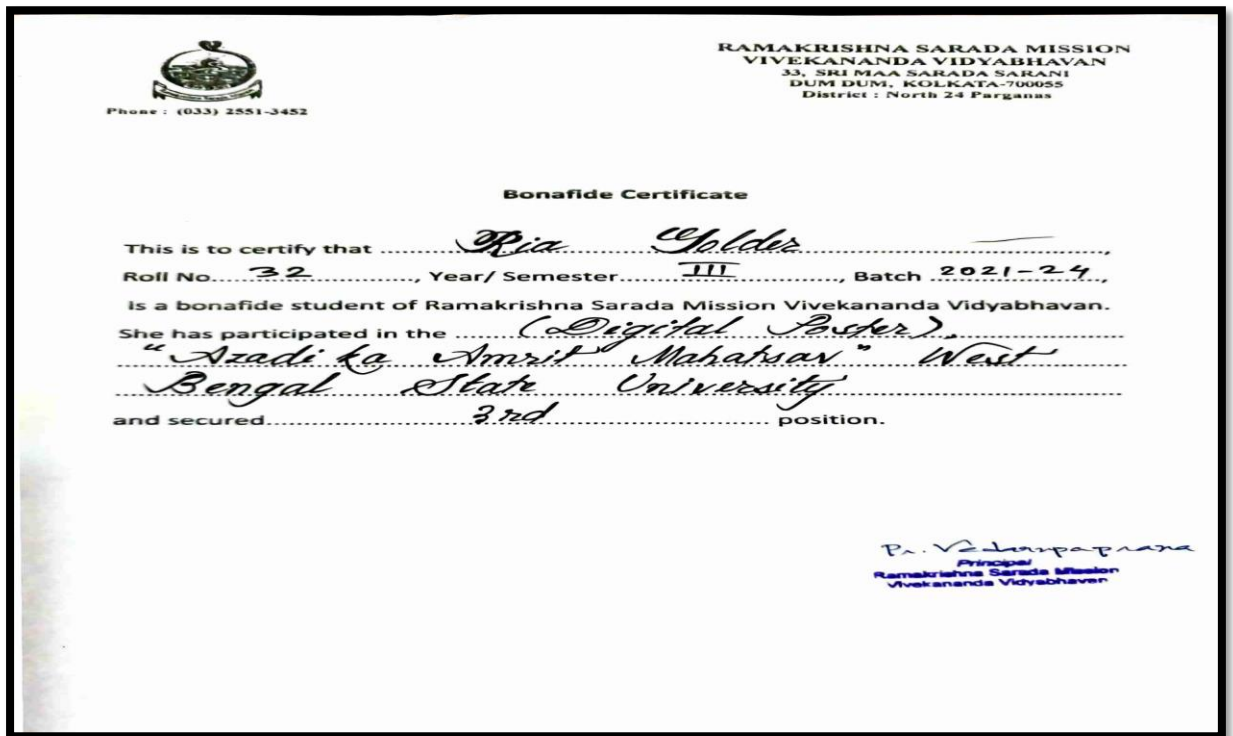 RAMAKRISHNA SARADA MISSION
VIVEKANANDA VIDYABHAVAN
33, SRI MAA SARADA SARANI
DUM DUM, KOLKATA-700055
District : North 24 Parganas
Phone : (033) 2551-3452
Bonafide Certificate
This is to certify that ........ Ria Golder ........,
Roll No.....32............., Year/ Semester.........III............., Batch ..2021-24..,
is a bonafide student of Ramakrishna Sarada Mission Vivekananda Vidyabhavan.
She has participated in the ......(Digital Poster)......
"Azadi ka Amrit Mahatsav" West
Bengal State University
and secured..........3rd.......... position.
Pr.
Principal
Ramakrishna Sarada Mission
Vivekananda Vidyabhavan